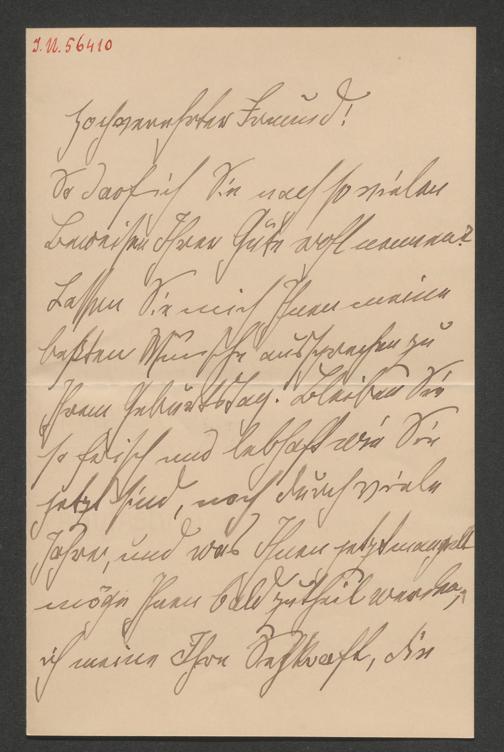 I.N. 56410
Hochverehrter Freund!
So darf ich Sie nach so vielen
Beweisen Ihrer Güte wohl nennen?
Lassen Sie mich Ihnen meine
besten Wünsche aussprechen zu
Ihrem Geburtstag! Bleiben Sie
so frisch und lebhaft wie Sie
jetzt sind, noch durch viele
Jahre, und was Ihnen jetzt mangelt
möge Ihnen bald zutheil werden,
ich meine Ihre Sehkraft, die